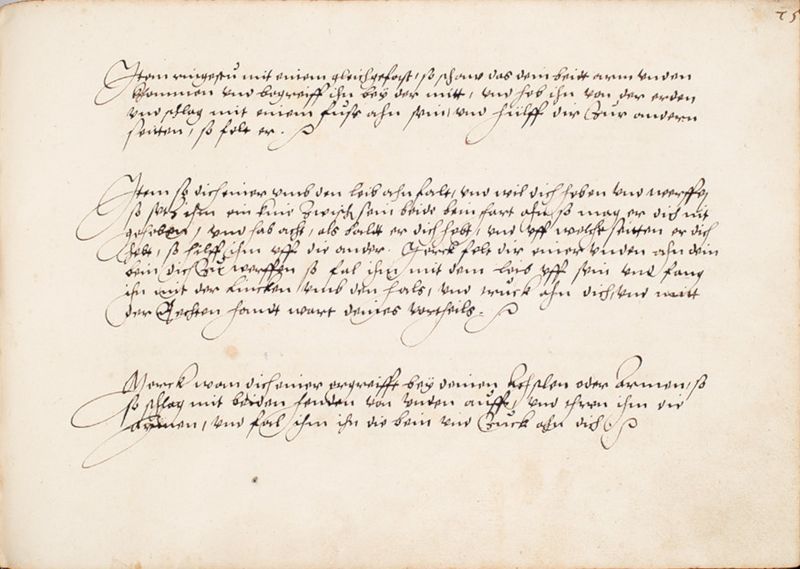 75
Item ringestu mit einem gleichgefast, so schaw das dem beidt arm unden
khommen und begreiff ihn bey der mitt, und heb ihn von der erden
und schlag mit einem fuss ahn sein, und hilff dir Zur andern
seitten, so felt er.
Item so dich einer umb den leib ahn falt, und wil dich heben und werffen
so setz ihm ein knie Zwisch sein beide bein hart ahn, so mag er dich nit
geheben, und hab acht, als baldt er dich hebt, und uff welche seitten er dich
hebt, so hilff ihm uff die ander. Merck felt dir einer unden ahn dein
bein dich Zu werffen so fal ihm mit dem leib uff sein und fang
ihn mit der lincken umb den hals, und truck ahn dich, und mitt
der Rechten handt wart deines vortheils.
Merck wan dich einer ergreifft bey deinen Achslen oder Armen, so
so schlag mit beiden henden von unden auff, und ihm die
Armen, und fal ihm ihn die bein und Zuck ahn dich